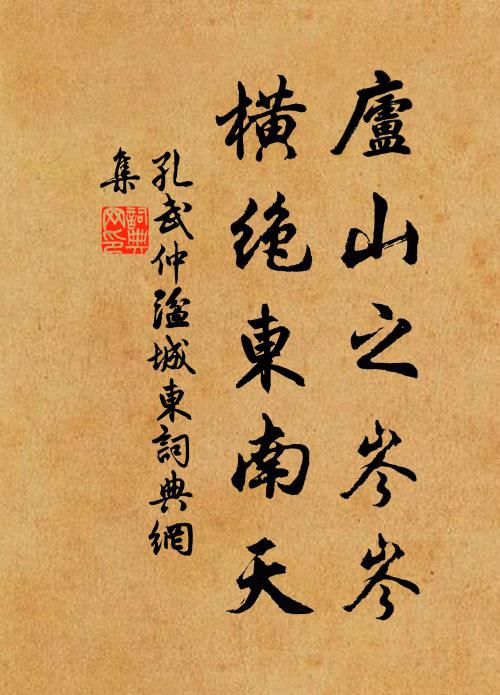 廬山之岑岑
橫絶東南天
孔武仲湓城東詞典網
集
詞典網印